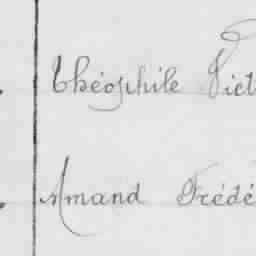 Théophile Vict
Amand Frédé